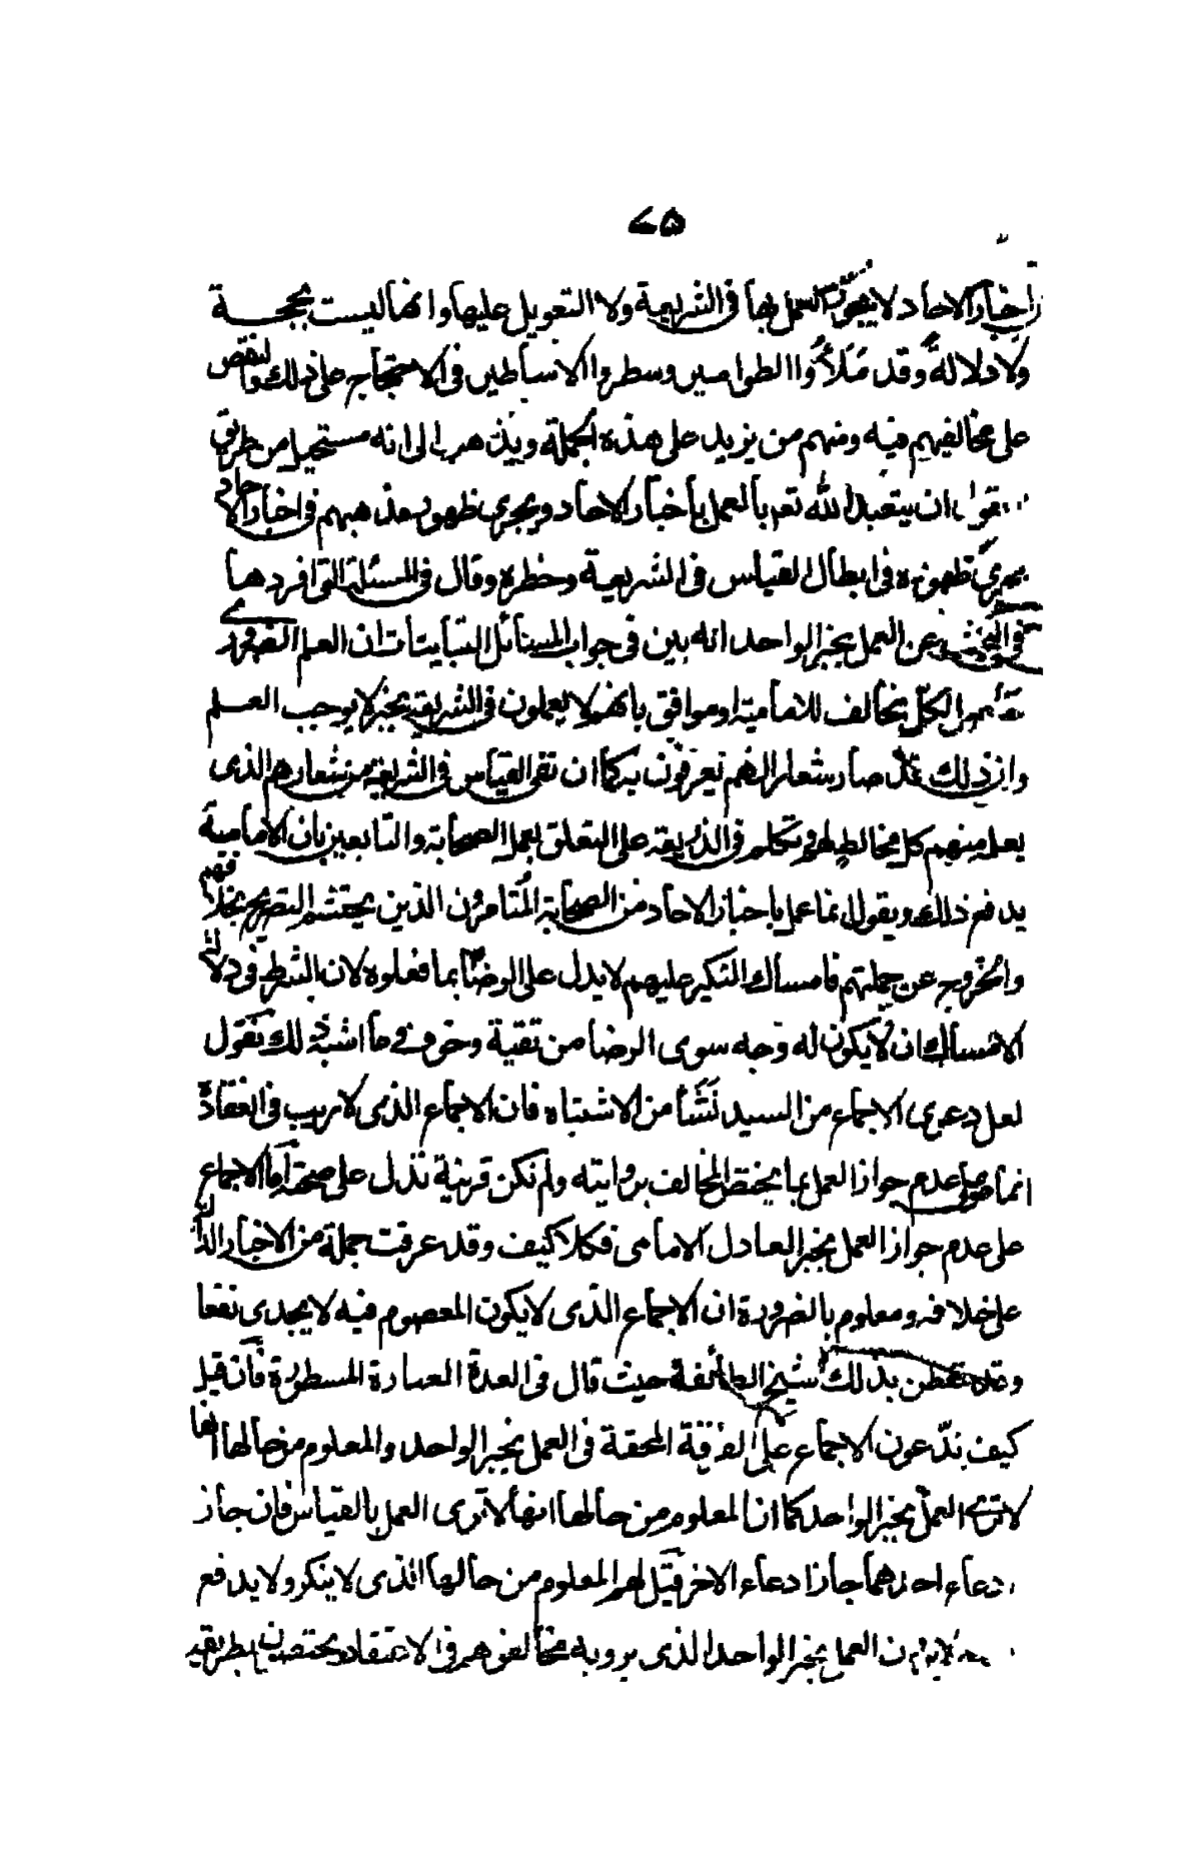 ٧٥
اخبار الاحاد لا يجوز العمل بها فى الشريعة ولا التعويل عليها وانها ليست بحجة
ولا دلالة وقد ملأوا الطوامير وسطروا الاساطير فى الاحتجاج على ذلك والنقض
على مخالفيهم فيه ومنهم من يزيد على هذه الجملة ويذهب الى انه مستحيل من طريق
ان يتعبد الله تعالى بالعمل باخبار الاحاد ويجرى ظهور مذهبهم فى اخبار الاحاد
مجرى ظهوره فى ابطال القياس فى الشريعة وحظره وقال فى المسئلة التى افردها
فى البحث عن العمل بخبر الواحد انه بين فى جواب المسائل التبانيات ان العلم الضرورى
لكل مخالف للامامية او موافق بانهم لا يعملون فى الشريعة بخبر لا يوجب العلم
وان ذلك قد صار شعارا لهم يعرفون به كما ان نفى القياس فى الشريعة من شعارهم الذى
يعلمه منهم كل مخالط لهم وتكلم فى الذريعة على التعلق بعمل الصحابة والتابعين بان الامامية
يدفع ذلك ويقول انما عمل باخبار الاحاد من الصحابة المتامرون الذين يحتشم التصريح بخلافهم
والخروج عن جملتهم فامساك النكير عليهم لا يدل على الرضا بما فعلوه لان الشرط فى دلالة
الامساك ان لا يكون له وجه سوى الرضا من تقية وخوف وما اشبه ذلك نقول
لعل دعوى الاجماع من السيد نشأ من الاشتباه فان الاجماع الذى لا ريب فى انعقاده
انما هو على عدم جواز العمل بما يختص المخالف بروايته ولم تكن قرينة تدل على صحته اما الاجماع
على عدم جواز العمل بخبر العادل الامامى فكلا كيف وقد عرفت جملة من الاخبار الدالة
على خلافه ومعلوم بالضرورة ان الاجماع الذى لا يكون المعصوم فيه لا يجدى نفعا
وقد تفطن بذلك شيخ الطائفة حيث قال فى العدة العبارة المسطورة فان قيل
كيف تدعون الاجماع على الفرقة المحقة فى العمل بخبر الواحد والمعلوم من حالها انها
لا ترى العمل بخبر الواحد كما ان المعلوم من حالها انها لا ترى العمل بالقياس فان جاز
ادعاء احدهما جاز ادعاء الاخر قيل لهم المعلوم من حالها الذى لا ينكر ولا يدفع
لا يرون العمل بخبر الواحد الذى يرويه مخالفوهم فى الاعتقاد ويختصون بطريقه